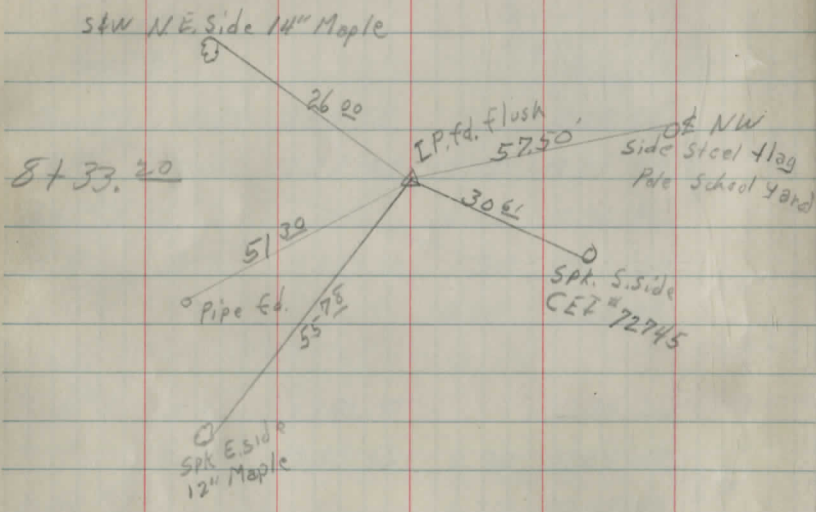 S&W N.E. Side 14" Maple
26 00
I.P. fd. flush
57.50'
₵ NW
Side Steel flag
Pole School yard
8+33.20
30 61
51 30
Spk. S. side
CEI #72745
Pipe fd.
55 78
Spk E. side
12" Maple